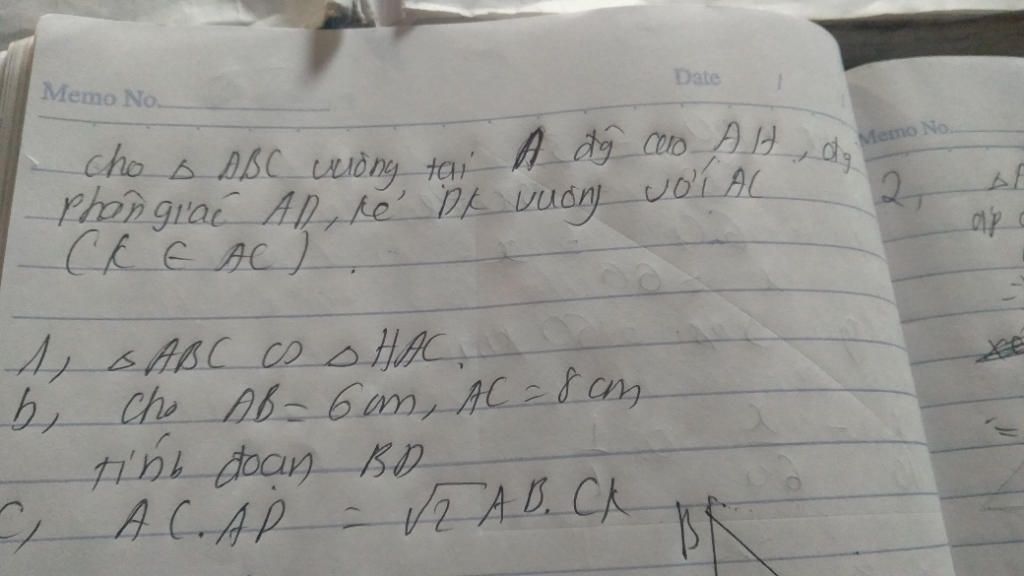 Memo No.
Date
cho △ ABC vuông tại A đg cao AH, đg
phân giác AD, kẻ DK vuông với AC
(K ∈ AC).
1, △ ABC ∽ △ HAC.
b, Cho AB = 6 cm, AC = 8 cm
tính đoạn BD
C, AC.AD = √2 AB.CK
B
Memo No.
2,